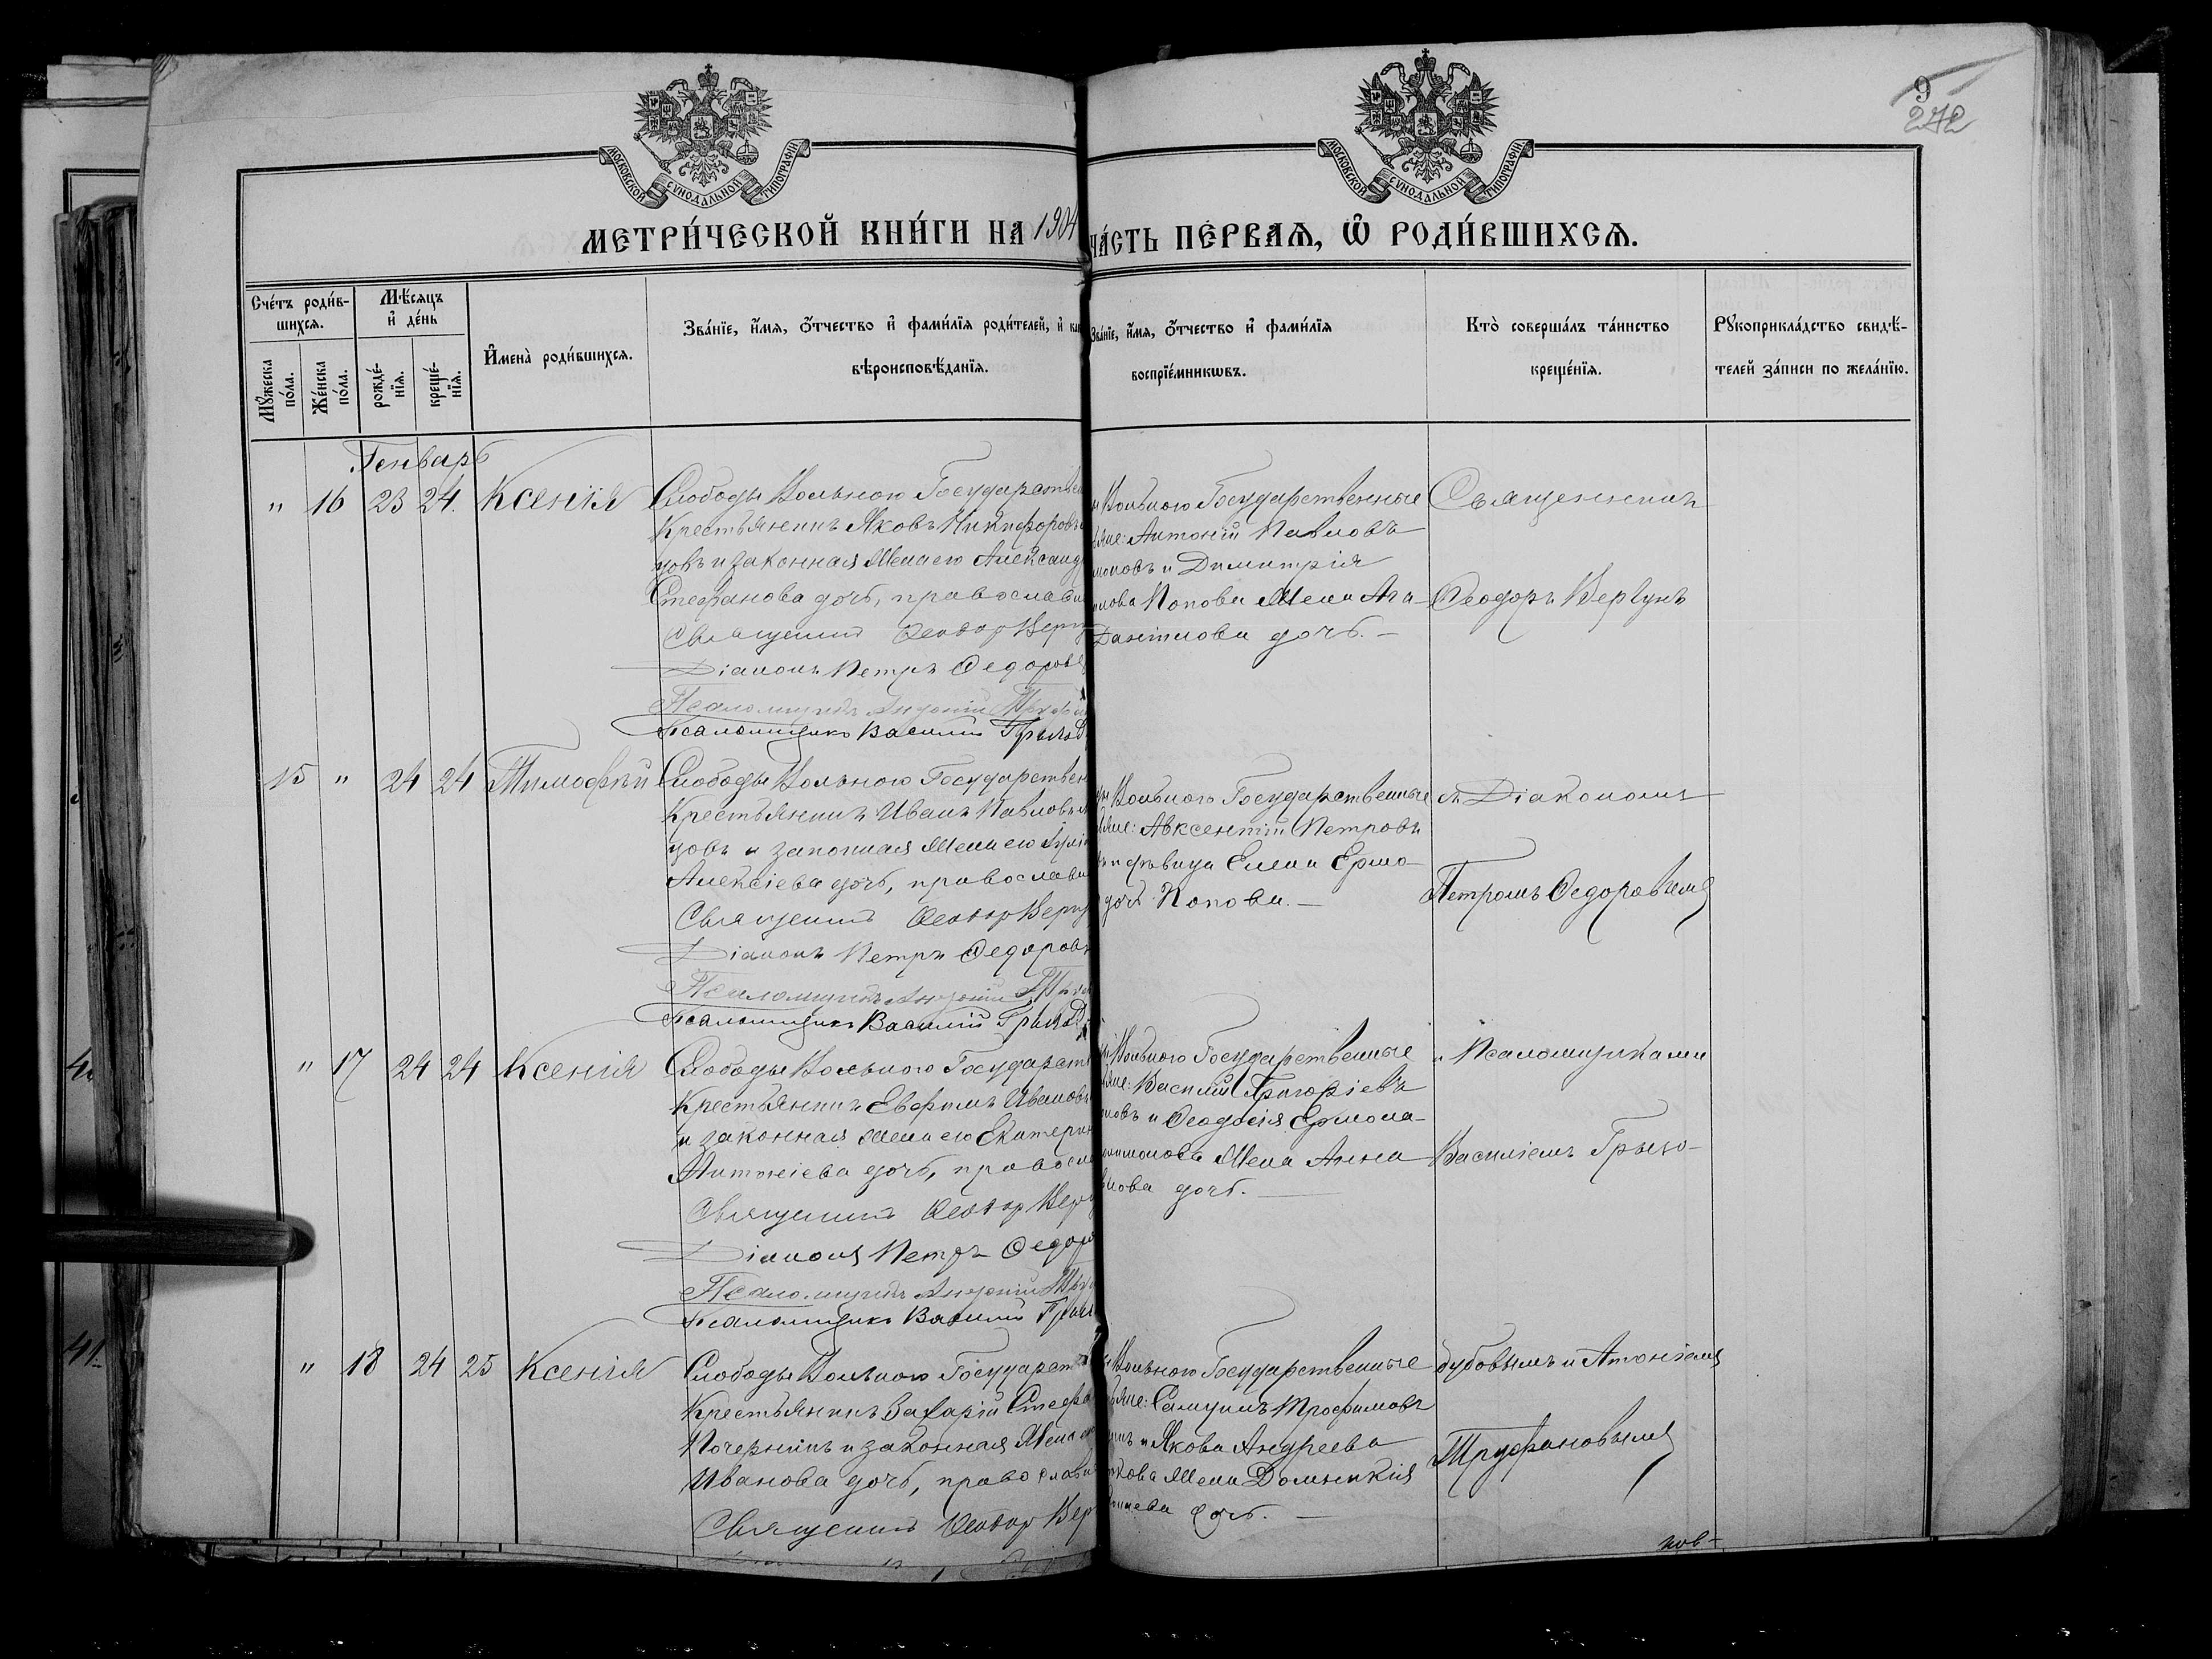 9
272
МОСКОВСКОЙ СѴНОДАЛЬНОЙ ТИПОГРАФІИ
МОСКОВСКОЙ СѴНОДАЛЬНОЙ ТИПОГРАФІИ
МЕТРИ́ЧЕСКОЙ КНИ́ГИ НА 1904
ЧА́СТЬ ПЕ́РВАѦ, Ѡ҆ РОДИ́ВШИХСѦ.
Сче́тъ роди́в-
шихсѧ.
Мꙋ́жеска по́ла.
Же́нска по́ла.
Мѣ́сѧцъ
и҆ де́нь
рожде́-
нїѧ.
креще́-
нїѧ.
И҆мена̀ роди́вшихсѧ.
Зва́нїе, и҆́мѧ, ѻ҆́тчество и҆ фами́лїѧ роди́телей, и҆
вѣроисповѣ́данїѧ.
Зва́нїе, и҆́мѧ, ѻ҆́тчество и҆ фами́лїѧ
воспрїе́мникѡвъ.
Кто̀ соверша́лъ та́инство
креще́нїѧ.
Рꙋкоприкла́дство свидѣ́-
телей за́писи по жела́нїю.
Генварь
" 16 23 24. Ксенія
Слободы Вольного Государствен
Крестьянинъ Яковъ Никифоровъ
цовъ и законная Жена его Александ
Стефанова дочь, православн
Священникъ Ѳеодоръ Верг
Діаконъ Петръ Ѳедоровъ
Псаломщикъ Антоній
Псаломщикъ Василій Грыво
Вольного Государственные
Антоній Павловъ
и Димитрія
Попова Жена Ага-
Даніилова дочь. —
Священникъ
Ѳеодоръ Вергунъ
15 " 24 24 Тимофѣй
Слободы Вольного Государствен
Крестьянинъ Иванъ Павловъ
цовъ и законная Жена его
Алексіева дочь, православн
Священникъ Ѳеодоръ Верг
Діаконъ Петръ Ѳедоровъ
Псаломщикъ Антоній
Псаломщикъ Василій Грыво
Вольного Государственные
Авксентій Петровъ
и дѣвица Елена Ермо-
дочь Попова. —
съ Діакономъ
Петромъ Ѳедоровымъ
" 17 24 24 Ксенія
Слободы Вольного Государст
Крестьянинъ Евфимъ Ивановъ
и законная жена его Екатерин
Антоніева дочь, правосл
Священникъ Ѳеодоръ Верг
Діаконъ Петръ Ѳедор
Псаломщикъ Антоній
Псаломщикъ Василій Грыв
Вольного Государственные
Василій Григоріевъ
и Ѳеодосія Ермола-
Жена Анна
дочь. —
и Псаломщиками
Василіемъ Грыво-
" 18 24 25 Ксенія
Слободы Вольного Государст
Крестьянинъ Захарій Стефа
Почернинъ и законная Жена его
Иванова дочь, православн
Священникъ Ѳеодоръ Вер
Вольного Государственные
Самуилъ Трофимовъ
и Якова Андреева
Жена Домникія
дочь. —
дубовымъ и Атоніемъ
Труфановымъ
нов-
40
41